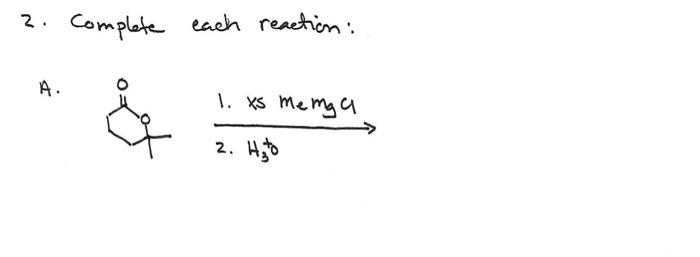 2. Complete each reaction:
A.
O
O
1. xs MeMgCl
2. H₃⁺O